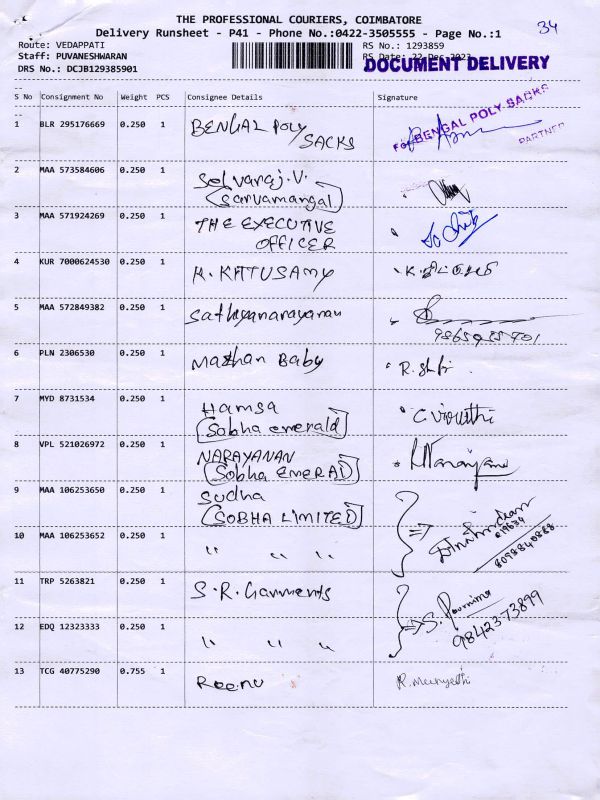 THE PROFESSIONAL COURIERS, COIMBATORE
34
Delivery Runsheet - P41 - Phone No.:0422-3505555 - Page No.:1
Route: VEDAPPATI
RS No.: 1293859
Staff: PUVANESHWARAN
RS Date: 22-Dec-2023
DOCUMENT DELIVERY
DRS No.: DCJB129385901
S No Consignment No Weight PCS Consignee Details Signature
1 BLR 295176669 0.250 1 BENGAL POLY SACKS
For BENGAL POLY SACKS
PARTNER
2 MAA 573584606 0.250 1 Selvaraj.V.
(Sarvamangal)
3 MAA 571924269 0.250 1 THE EXECUTIVE
OFFICER
4 KUR 7000624530 0.250 1 K. KATUSAMY
5 MAA 572849382 0.250 1 Sathyanarayanan
6 PLN 2306530 0.250 1 Mathan Baby
7 MYD 8731534 0.250 1 Hamsa
(Sobha emerald)
8 VPL 521026972 0.250 1 NARAYANAN K Narayanan
(Sobha EMERAD)
9 MAA 106253650 0.250 1 Sudha
(SOBHA LIMITED)
10 MAA 106253652 0.250 1 " " "
8098840888
11 TRP 5263821 0.250 1 S.R. Garments
S. Pournima
9842373899
12 EDQ 12323333 0.250 1 " " "
13 TCG 40775290 0.755 1 Reenu